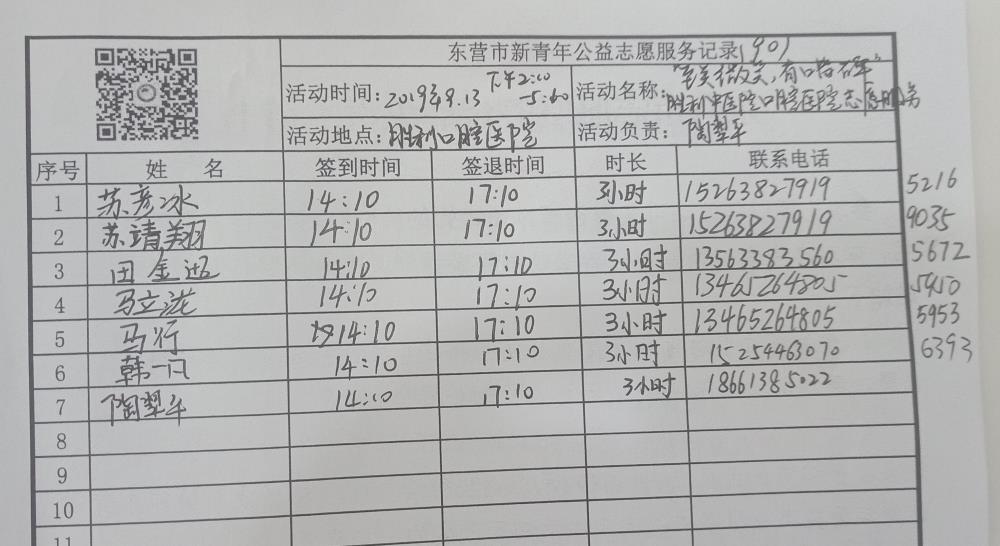 东营市新青年公益志愿服务记录(90)
活动时间:2019年9.13 下午2:00-5:00 活动名称:
胜利中医院口腔医院志愿服务
活动地点:胜利口腔医院 活动负责:陶翠平
序号 姓 名 签到时间 签退时间 时长 联系电话
1 苏彦冰 14:10 17:10 3小时 15263827919 5216
2 苏靖翔 14:10 17:10 3小时 15263827919 9035
3 田金迅 14:10 17:10 3小时 13563383560 5672
4 马立泷 14:10 17:10 3小时 13465264805 5450
5 马行 14:10 17:10 3小时 13465264805 5953
6 韩一凡 14:10 17:10 3小时 15254463070 6393
7 陶翠平 14:10 17:10 3小时 18661385022
8
9
10
11